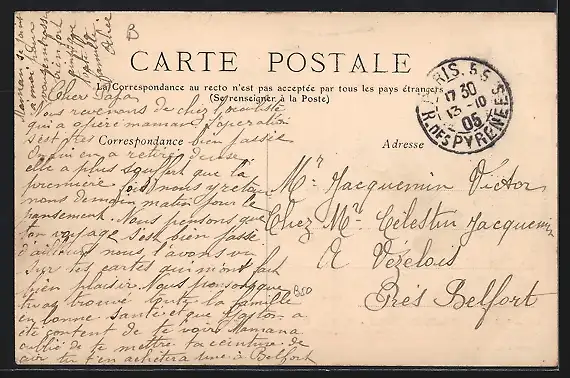 CARTE POSTALE
La Correspondance au recto n'est pas acceptée par tous les pays étrangers
(Se renseigner à la Poste)
Correspondance
Adresse
PARIS. 55
17 30
13 - 10
05
R. DES PYRENEES
Cher Papa
Nous revenons de chez l'oculiste
qui a opéré maman l'operation
s'est très bien passée
On lui en a retiré deuse
elle a plus souffert que la
première fois nous y retour
nons demain matin pour le
pansement. Nous pensons que
ton voyage s'est bien passé
d'ailleurs nous l'avons vu
sur tes cartes qui m'ont fait
bien plaisir. Nous pensons que
tu as trouvé toute la famille
en bonne Santé et que Gaston a
été content de te voir. Mamana
oublié de te mettre ta ceinture de
cuir tu t'en achètera une à Belfort
Maman se joint
à moi pour
t'embrasser
bien fort
ainsi que
toute la
famille
Alice
Mr Jacquemin Victor
Chez Mr Célestin Jacquemin
A Vézelois
Près Belfort
B50